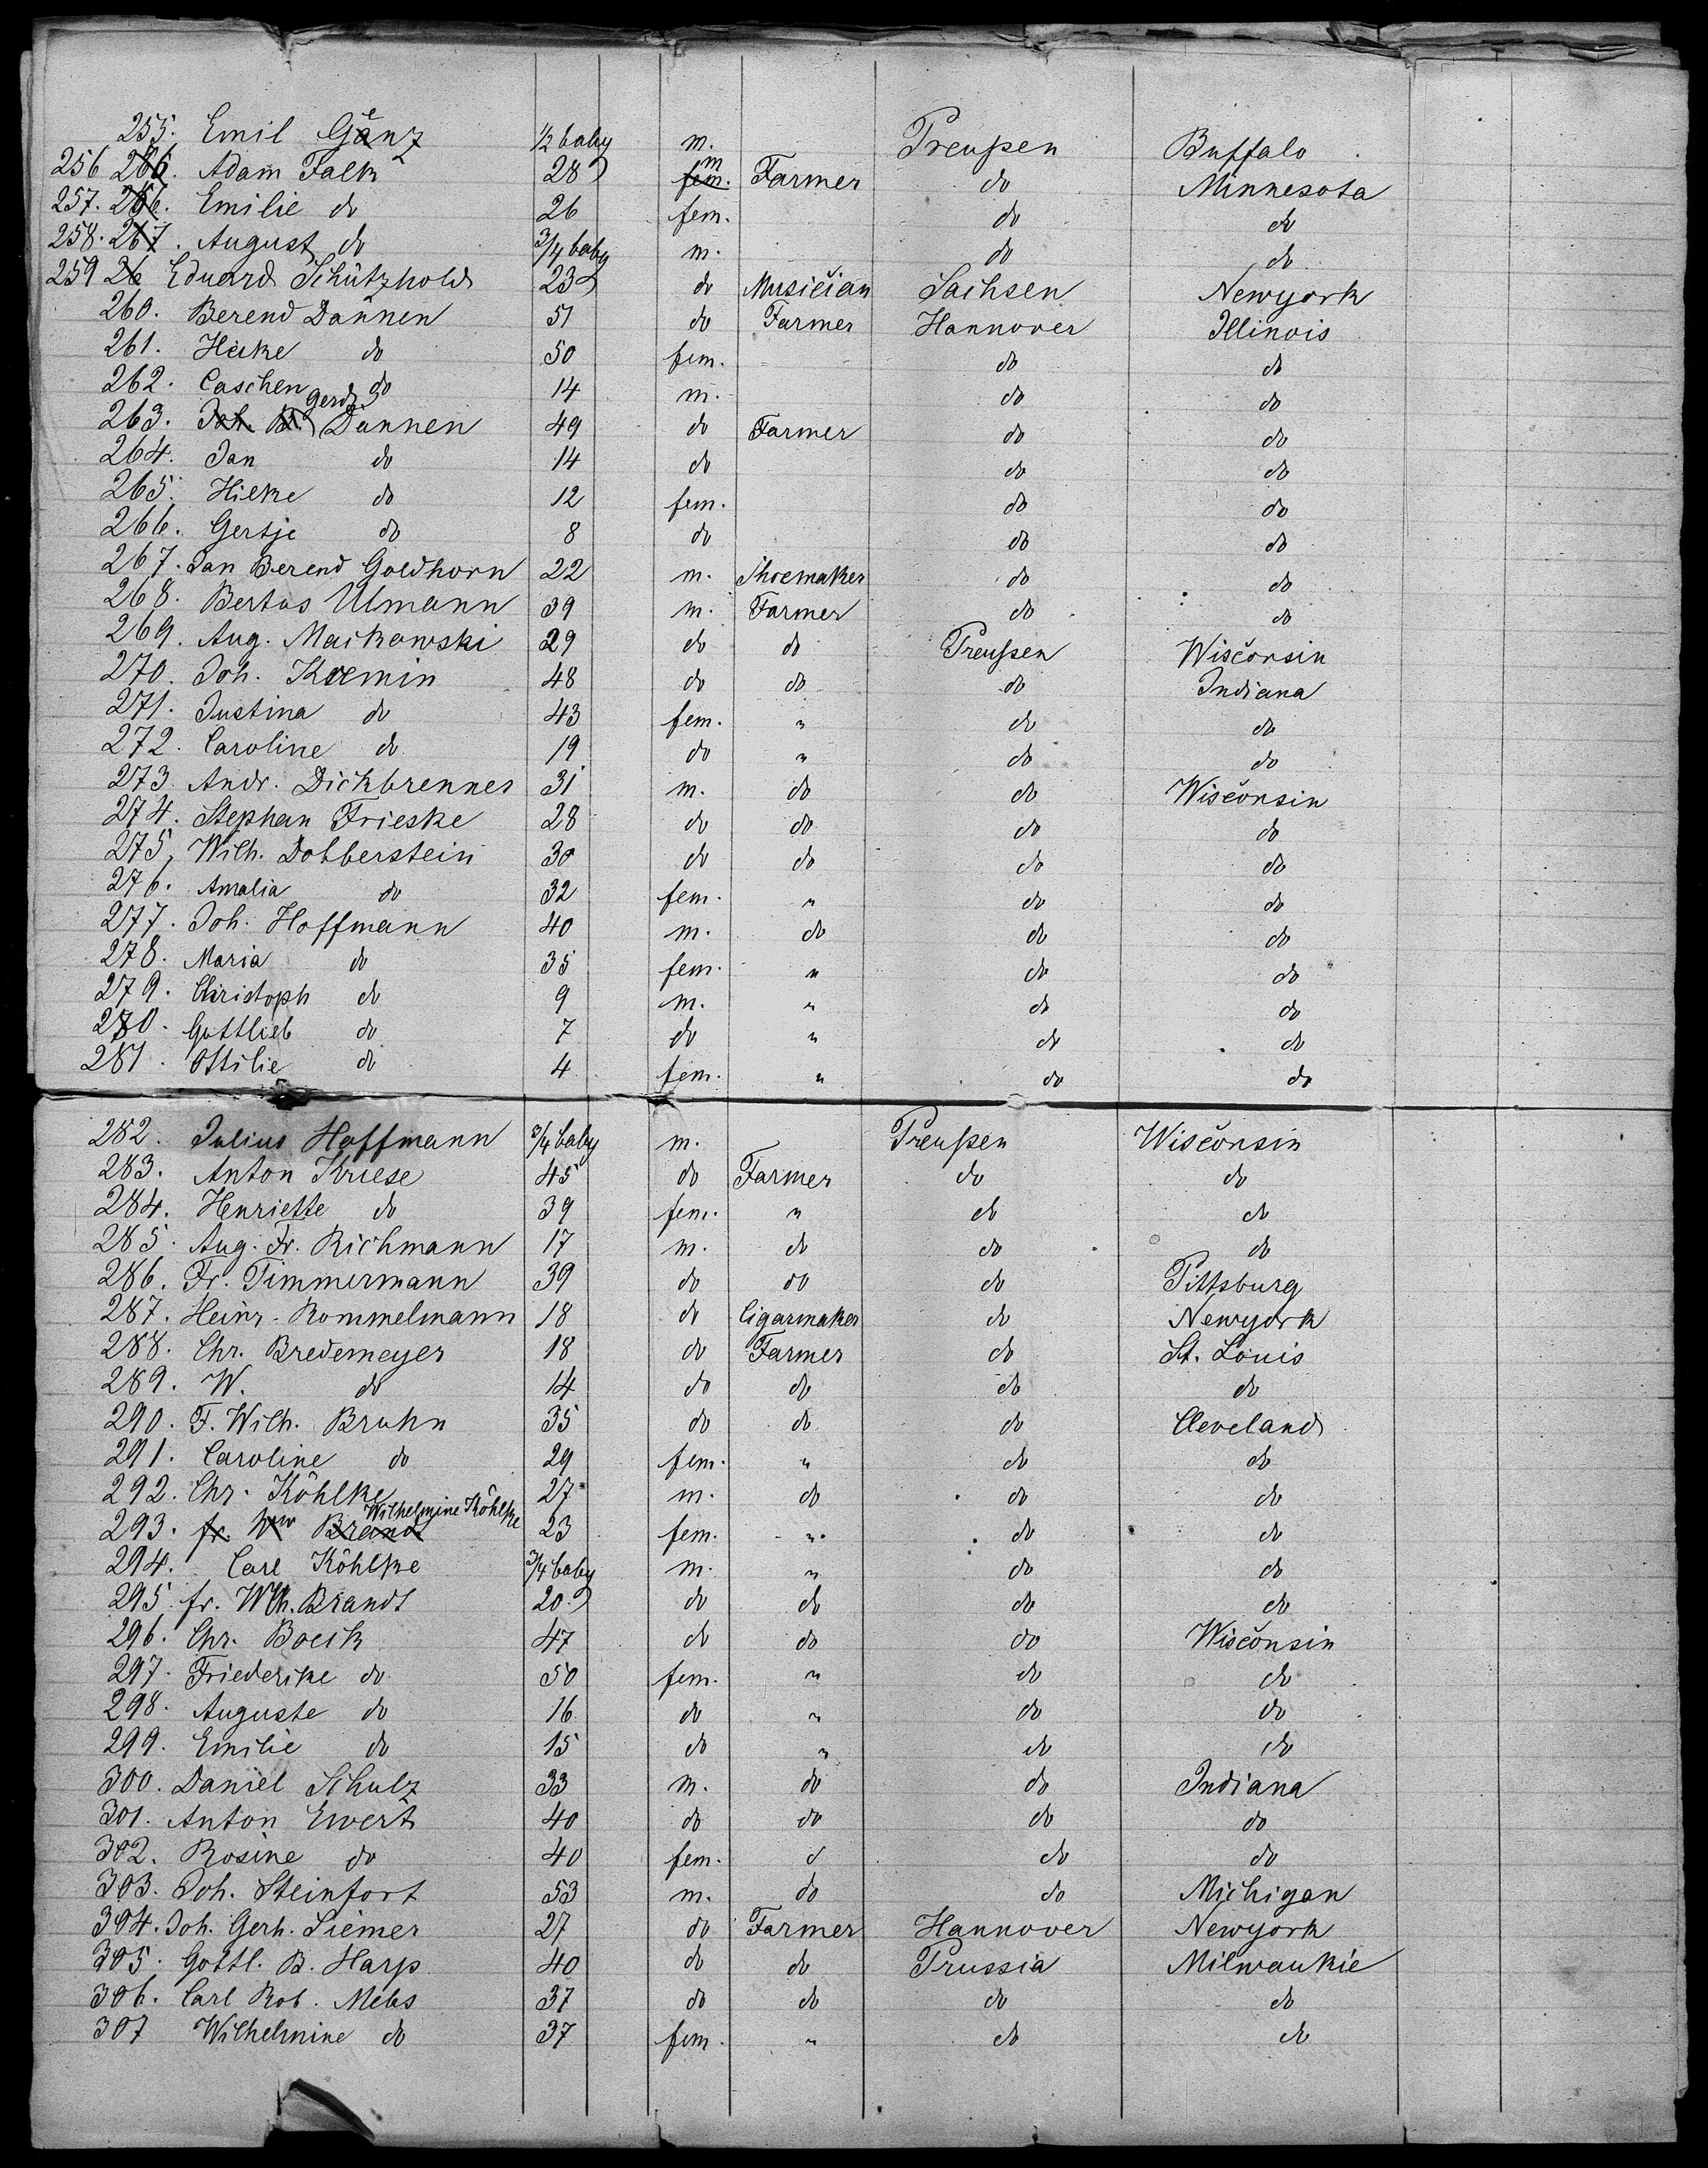 255. Emil Gänz ½ baby m. Preußen Buffalo
256 Adam Falk 28 m Farmer do Minnesota
257. Emilie do 26 fem. do do
258. August do ¾ baby m. do do
259 Eduard Schützhold 23 do Musician Sachsen Newyork
260. Berend Dannen 51 do Farmer Hannover Illinois
261. Heike do 50 fem. do do
262. Caschen do 14 m. do do
263. Gerd Dannen 49 do Farmer do do
264. Jan do 14 do do do
265. Hilke do 12 fem. do do
266. Gertje do 8 do do do
267. Jan Berend Goldhorn 22 m. Shoemaker do do
268. Bertus Ulmann 39 m. Farmer do do
269. Aug. Maikowski 29 do do Preußen Wisconsin
270. Joh. Kremin 48 do do do Indiana
271. Justina do 43 fem. " do do
272. Caroline do 19 do " do do
273. Andr. Dickbrenner 31 m. do do Wisconsin
274. Stephan Frieske 28 do do do do
275. Wilh. Dobberstein 30 do do do do
276. Amalia do 32 fem. " do do
277. Joh. Hoffmann 40 m. do do do
278. Maria do 35 fem. " do do
279. Christoph do 9 m. " do do
280. Gottlieb do 7 do " do do
281. Ottilie do 4 fem. " do do
282. Julius Hoffmann ¾ baby m. Preußen Wisconsin
283. Anton Kriese 45 do Farmer do do
284. Henriette do 39 fem. " do do
285. Aug. Fr. Richmann 17 m. do do do
286. Fr. Timmermann 39 do do do Pittsburg
287. Heinr. Rommelmann 18 do Cigarmaker do Newyork
288. Chr. Bredemeyer 18 do Farmer do St. Louis
289. W. do 14 do do do do
290. F. Wilh. Bruhn 35 do do do Cleveland
291. Caroline do 29 fem. " do do
292. Chr. Köhlke 27 m. do do do
293. Wilhelmine Köhlke 23 fem. " do do
294. Carl Köhlke ¾ baby m. " do do
295. fr. Wlh. Brandt 20 do do do do
296. Chr. Boeik 47 do do do Wisconsin
297. Friederike do 50 fem. " do do
298. Auguste do 16 do " do do
299. Emilie do 15 do " do do
300. Daniel Schulz 33 m. do do Indiana
301. Anton Ewert 40 do do do do
302. Rosine do 40 fem. do do
303. Joh. Steinfort 53 m. do do Michigan
304. Joh. Gerh. Siemer 27 do Farmer Hannover Newyork
305. Gottl. B. Harp 40 do do Prussia Milwaukie
306. Carl Rob. Mebs 37 do do do do
307 Wilhelmine do 37 fem. " do do